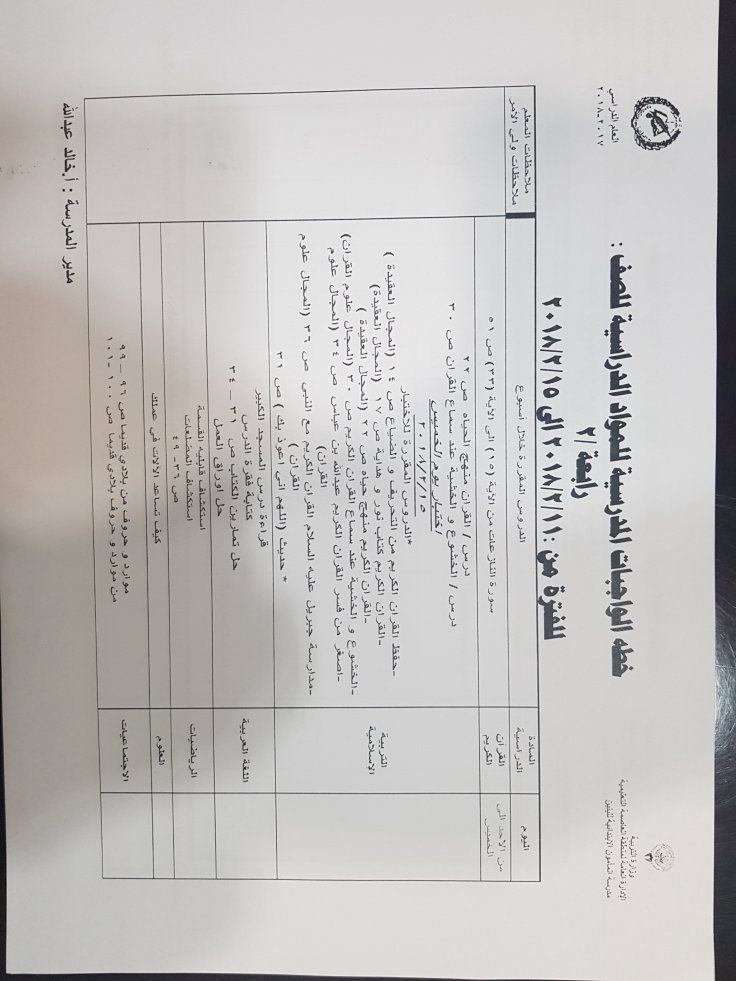 وزارة التربية
الإدارة العامة لمنطقة العاصمة التعليمية
مدرسة المأمون الابتدائية للبنين
العام الدراسي
٢٠١٧-٢٠١٨
خطه الواجبات المدرسية للمواد الدراسية للصف :
رابعة/٢
للفترة من :٢٠١٨/٢/١١ الى ٢٠١٨/٢/١٥
اليوم
المادة الدراسية
الدروس المقررة خلال أسبوع
ملاحظات المعلم
ملاحظات ولي الأمر
من الاحد الى الخميس
القران الكريم
سورة النازعات من الاية (١٥) الى الاية (٢٣) ص ٥١
التربية الإسلامية
درس / القران منهج الحياه ص ٢٢
درس / الخشوع و الخشية عند سماع القران ص ٣٠
اختبار يوم الخميس
٢٠١٨/٢/١٥
*الدروس المقررة للاختبار
-حفظ القران الكريم من التحريف و الضياع ص ١٤ (المجال العقيدة )
-القران الكريم كتاب نور و هداية ص ١٧ (المجال العقيدة)
-القران الكريم منهج حياه ص ٢٢ (المجال العقيدة )
-الخشوع و الخشية عند سماع القران الكريم ص ٣٠ (المجال علوم القران)
-اصغر من فسر القران الكريم عبدالله بن عباس ص ٣٤ (المجال علوم
القران)
-مدارسة جبريل عليه السلام القران الكريم مع النبي ص ٣٦ (المجال علوم
القران )
* حديث (اللهم اني اعوذ بك ) ص ٣١
اللغة العربية
قراءة درس المسجد الكبير
كتابة فقرة الدرس
حل تمارين الكتاب ص ٣١ – ٣٤
حل اوراق العمل
الرياضيات
استكشاف قابليه القسمة
استكشاف المضلعات
ص ٣٦- ٤٩
العلوم
كيف تساعد الآلات في عملك
الاجتماعيات
موارد و حروف من بلادي قديما ص ٩٦ – ٩٩
من موارد و حروف بلادي قديما ص ١٠٠ -١٠١
مدير المدرسة : أ.خالد عبدالله